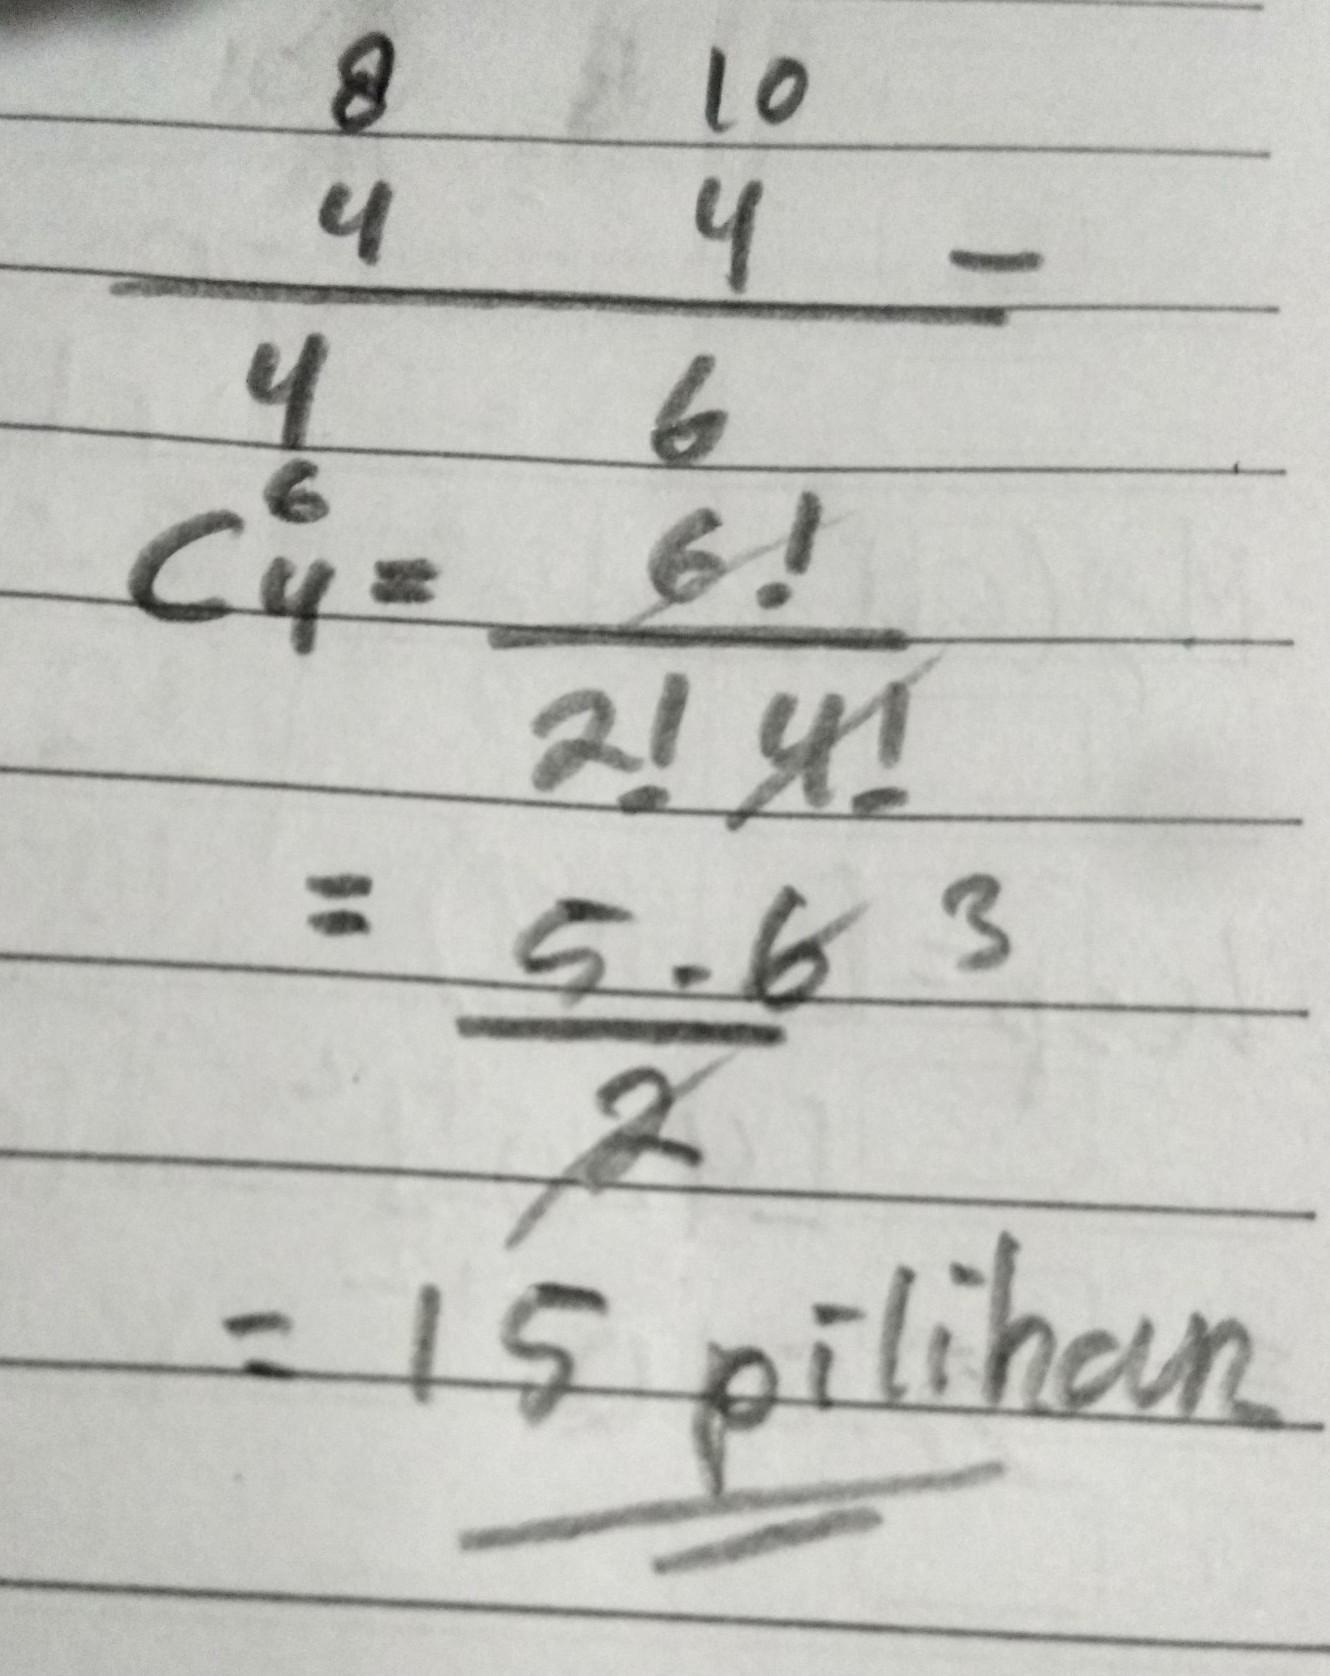 8 10
4 4 -
4 6
C 6 4 = 6! / 2! 4!
= 5 . 6 3 / 2
= 15 pilihan